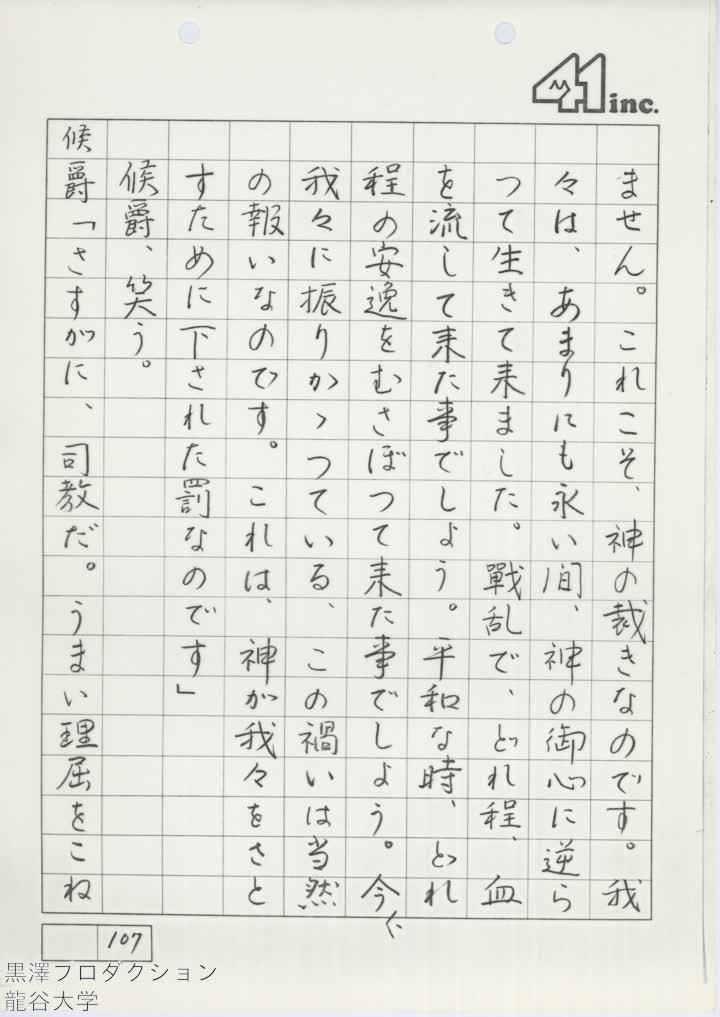 41 inc.
ません。これこそ、神の裁きなのです。我
々は、あまりにも永い間、神の御心に逆ら
つて生きて来ました。戰乱で、どれ程、血
を流して来た事でしよう。平和な時、どれ
程の安逸をむさぼつて来た事でしよう。今
我々に振りかゝつている、この禍いは当然
の報いなのです。これは、神が我々をさと
すために下された罰なのです」
候爵、笑う。
候爵「さすがに、司教だ。うまい理屈をこね
107
黒澤プロダクション
龍谷大学